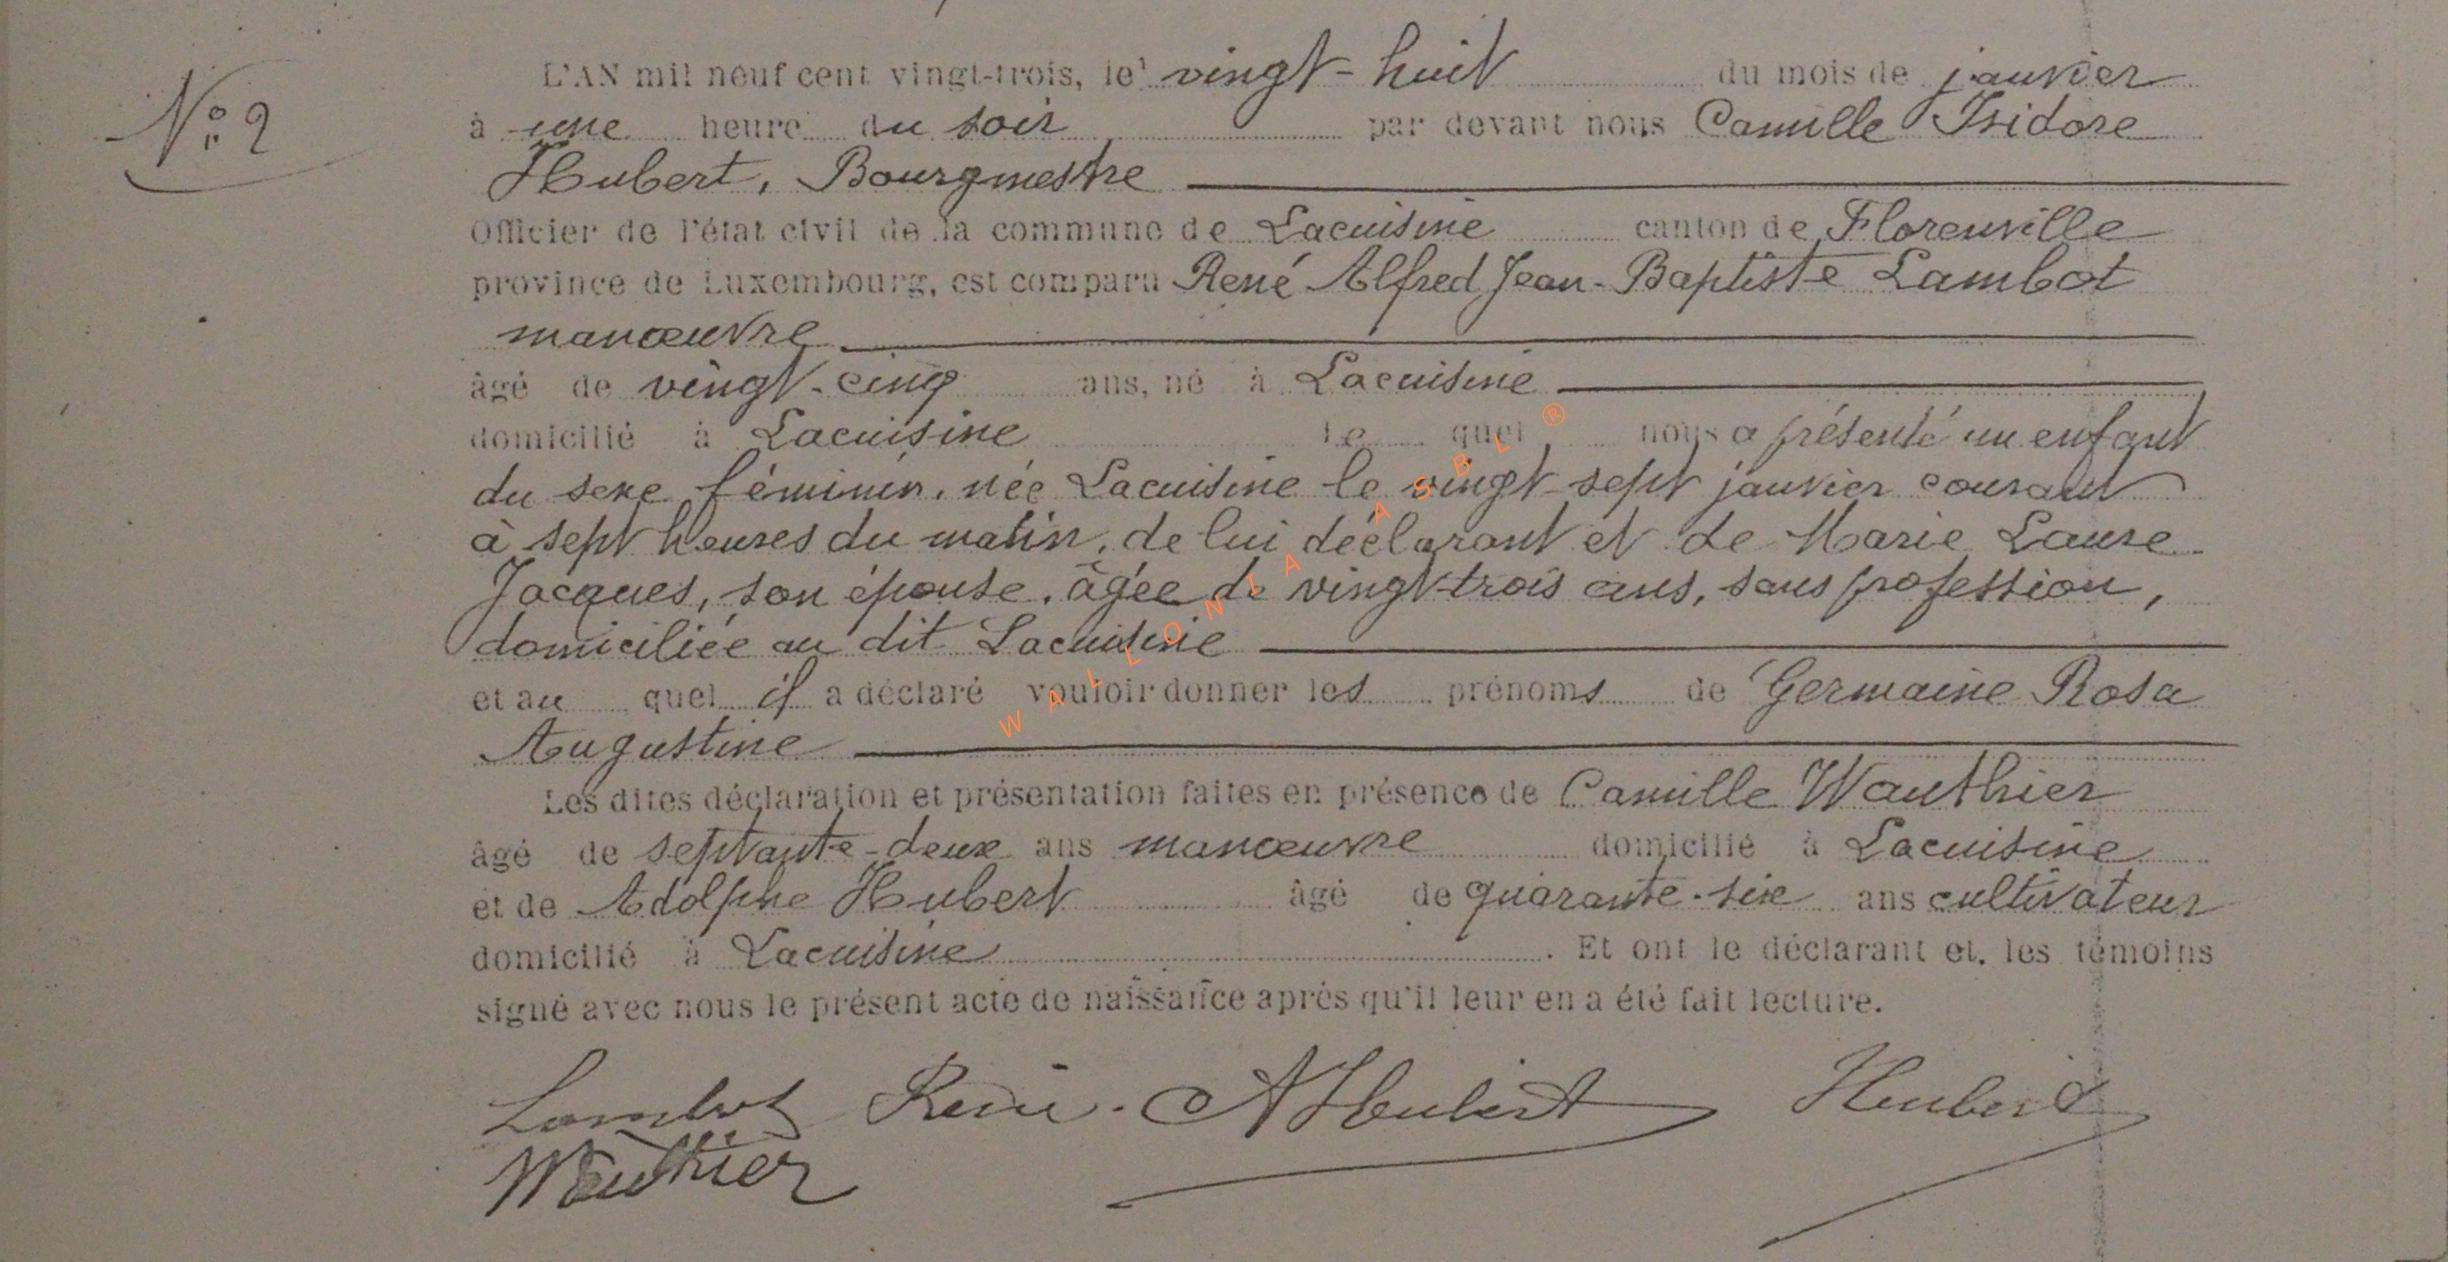 N° 2
L'AN mil neuf cent vingt-trois, le vingt-huit du mois de janvier
à une heure du soir par devant nous Camille Isidore
Hubert, Bourgmestre
Officier de l'état civil de la commune de Lacuisine canton de Florenville
province de Luxembourg, est comparu René Alfred Jean-Baptiste Lambot
manœuvre
âgé de vingt-cinq ans, né à Lacuisine
domicilié à Lacuisine le quel nous a présenté un enfant
du sexe féminin, née Lacuisine le vingt-sept janvier courant
à sept heures du matin, de lui déclarant et de Marie Laure
Jacques, son épouse, âgée de vingt-trois ans, sans profession,
domiciliée au dit Lacuisine
et au quel il a déclaré vouloir donner les prénoms de Germaine Rosa
Augustine
Les dites déclaration et présentation faites en présence de Camille Wauthier
âgé de septante-deux ans manœuvre domicilié à Lacuisine
et de Adolphe Hubert âgé de quarante-six ans cultivateur
domicilié à Lacuisine. Et ont le déclarant et les témoins
signé avec nous le présent acte de naissance après qu'il leur en a été fait lecture.
Lambot René. A Hubert Hubert
Wauthier
WALLONIA ASBL ®